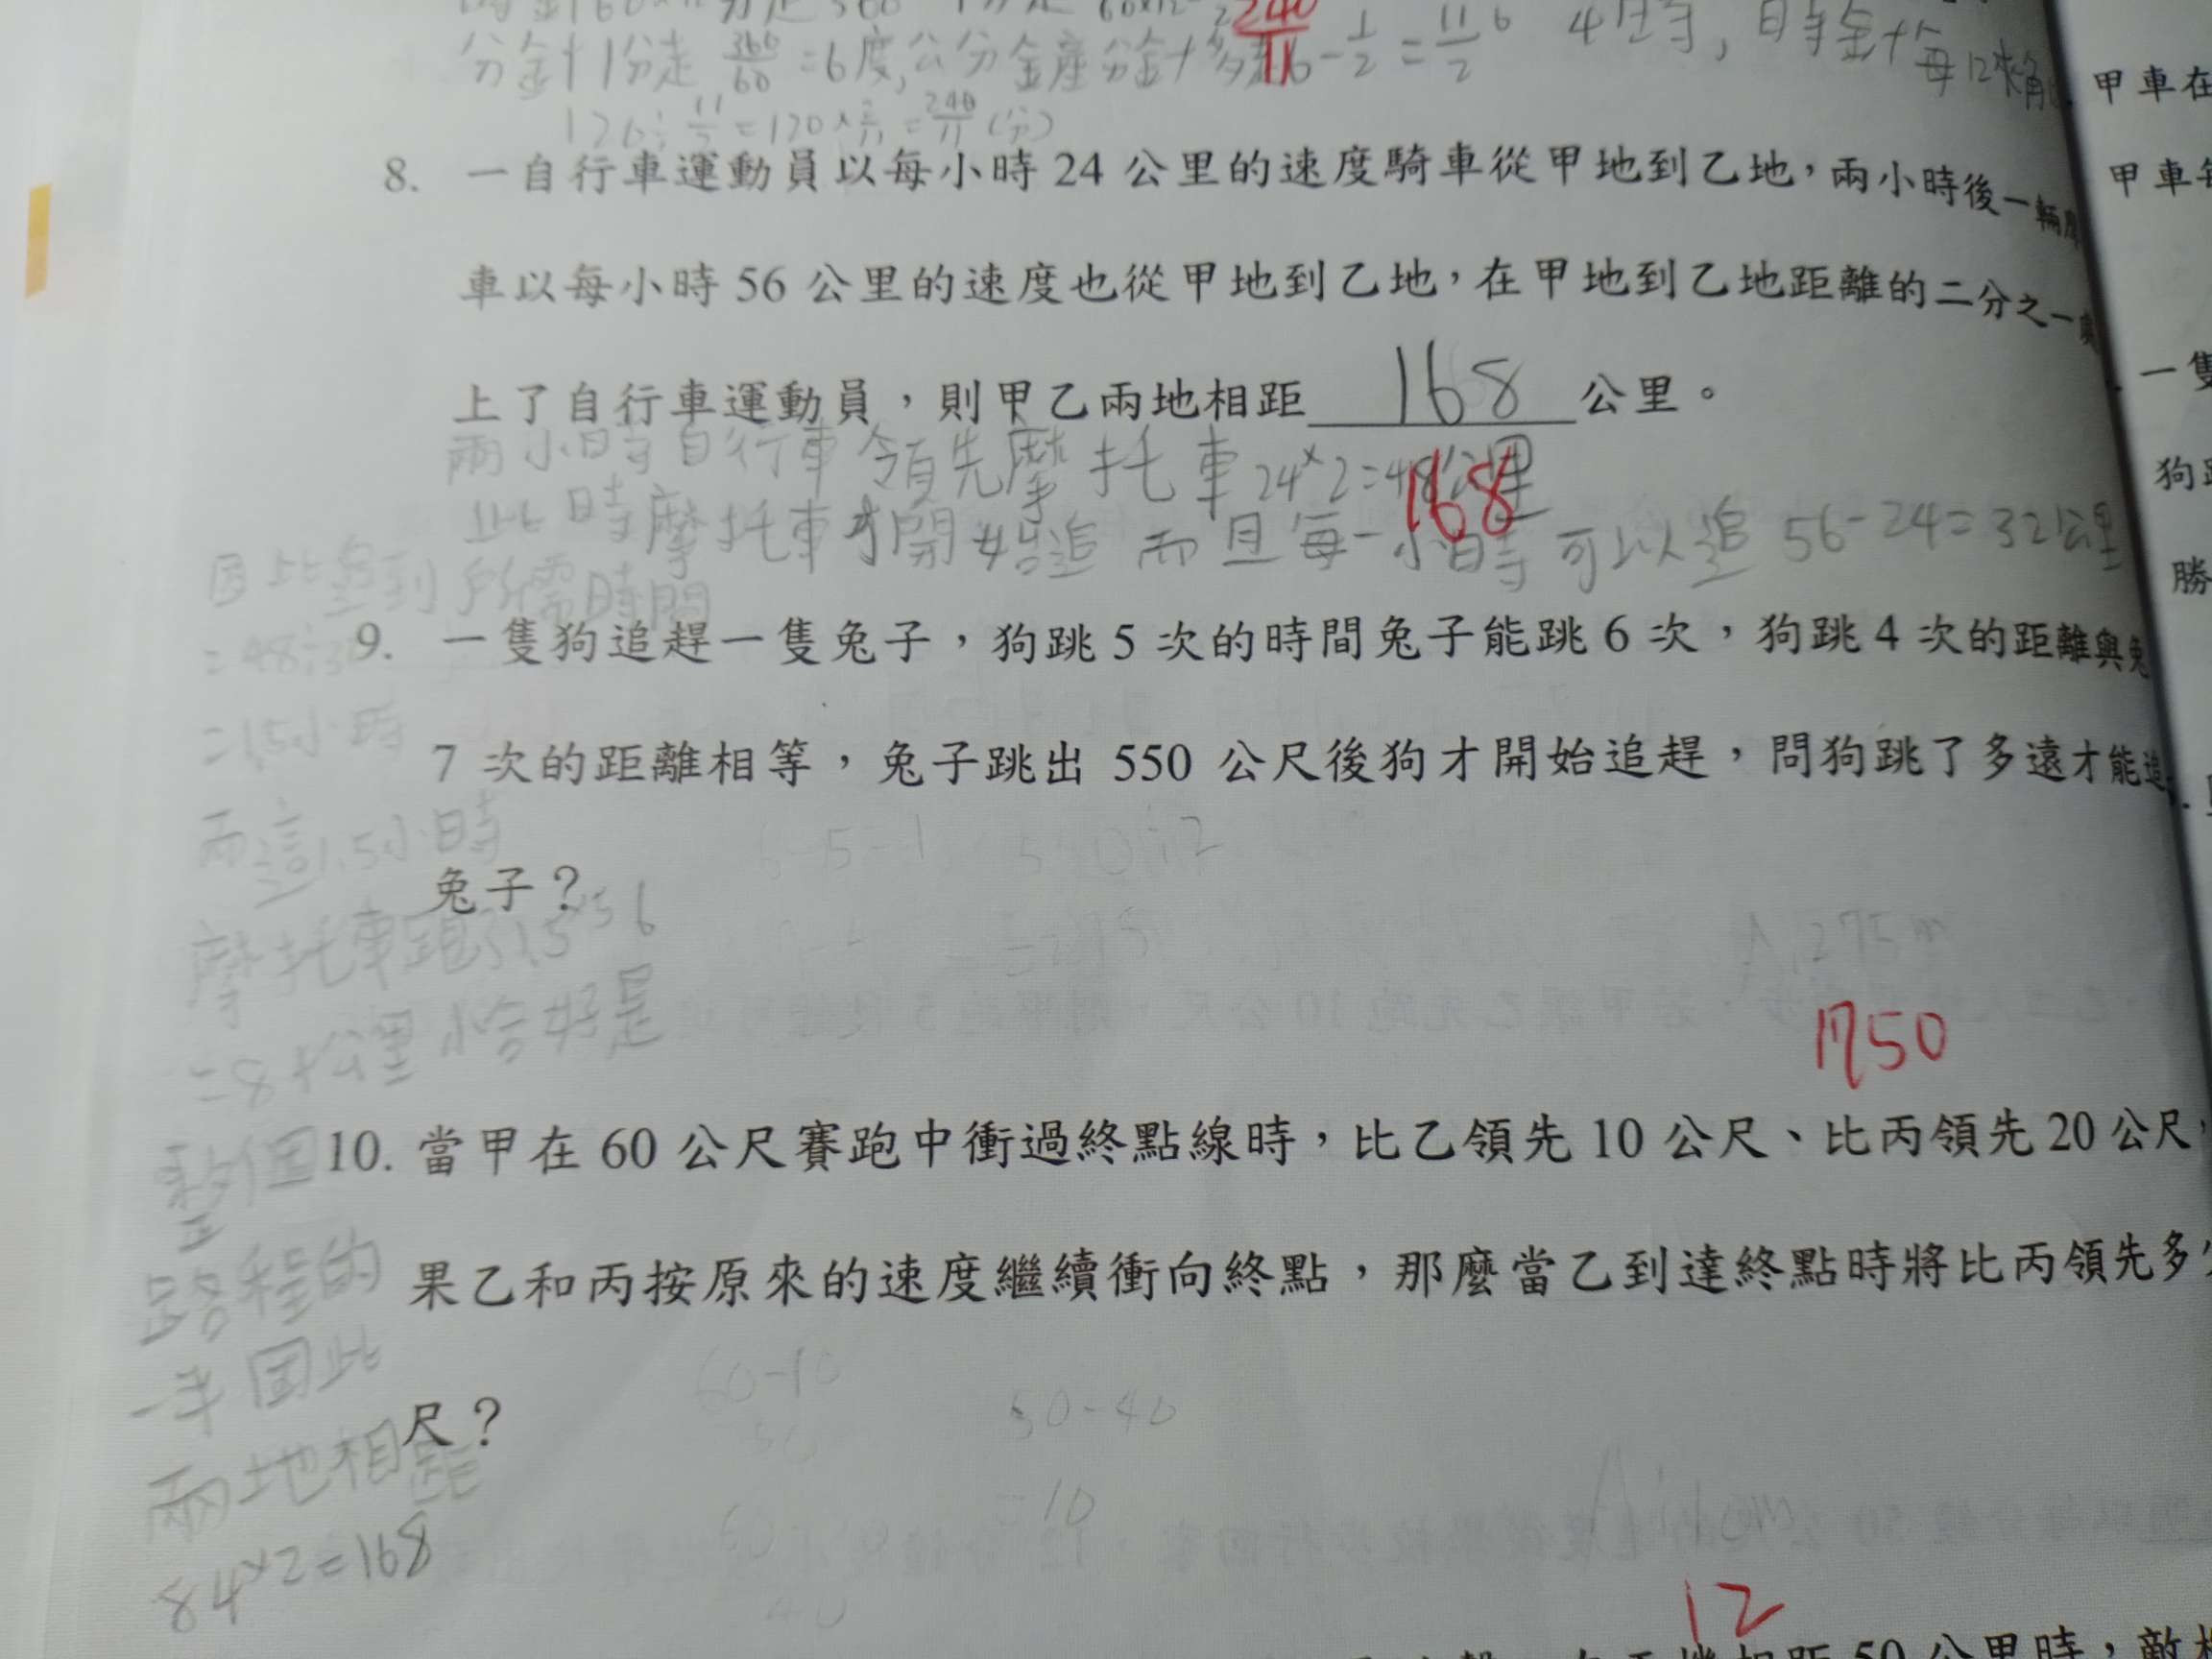 分針1分走 360/60 =6度,
240/11
6-1/2=11/2
=120×2/11=240/11(分)
甲車在
甲車每
8. 一自行車運動員以每小時 24 公里的速度騎車從甲地到乙地，兩小時後一輛
車以每小時 56 公里的速度也從甲地到乙地，在甲地到乙地距離的二分之一
上了自行車運動員，則甲乙兩地相距 168 公里。
兩小時自行車領先摩托車24×2=48公里
168
此時摩托車才開始追 而且每一小時可以追 56-24=32公里
因此追到所需時間
=1.5小時
摩托車跑
=84公里 恰好是
整個
路程的
一半因此
兩地相距
84×2=168
一隻
狗跳
勝
9. 一隻狗追趕一隻兔子，狗跳 5 次的時間兔子能跳 6 次，狗跳 4 次的距離與兔
7 次的距離相等，兔子跳出 550 公尺後狗才開始追趕，問狗跳了多遠才能追
兔子？
6-5=1
=275
A:275m
1750
10. 當甲在 60 公尺賽跑中衝過終點線時，比乙領先 10 公尺、比丙領先 20 公尺，
果乙和丙按原來的速度繼續衝向終點，那麼當乙到達終點時將比丙領先多
尺？
60-10
50
50-40
=10
60
40
12
相距 50 公里時，敵